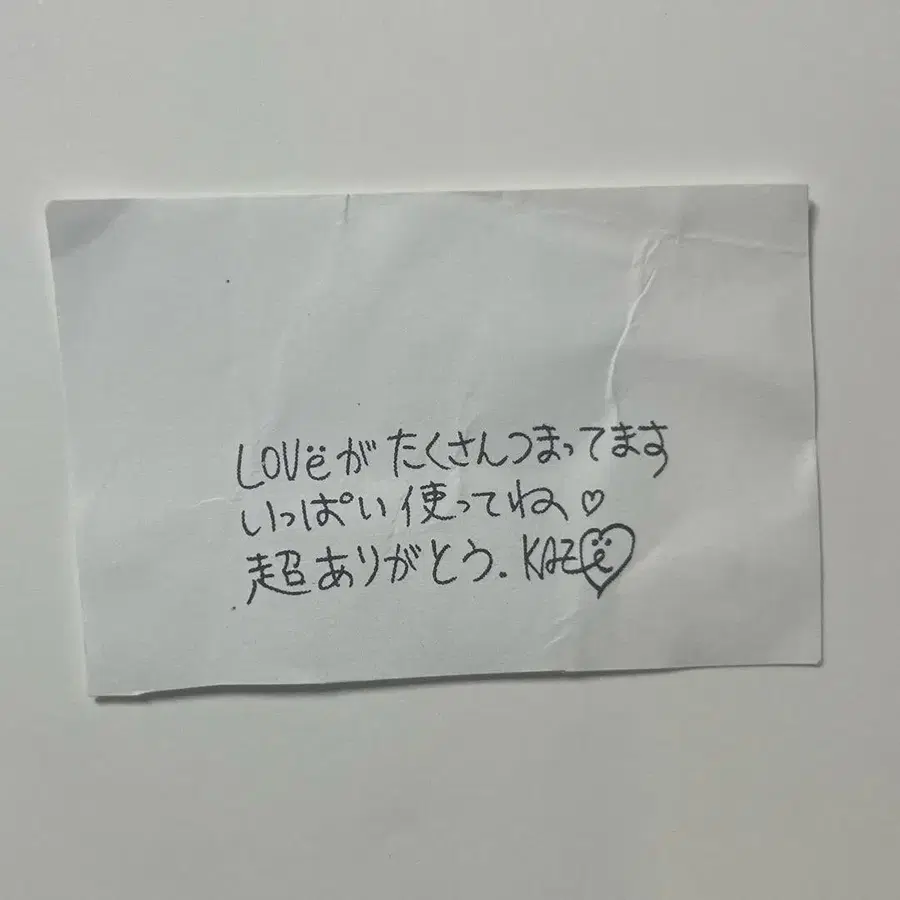 LOVëがたくさんつまってます
いっぱい使ってね♡
超ありがとう. KAZë